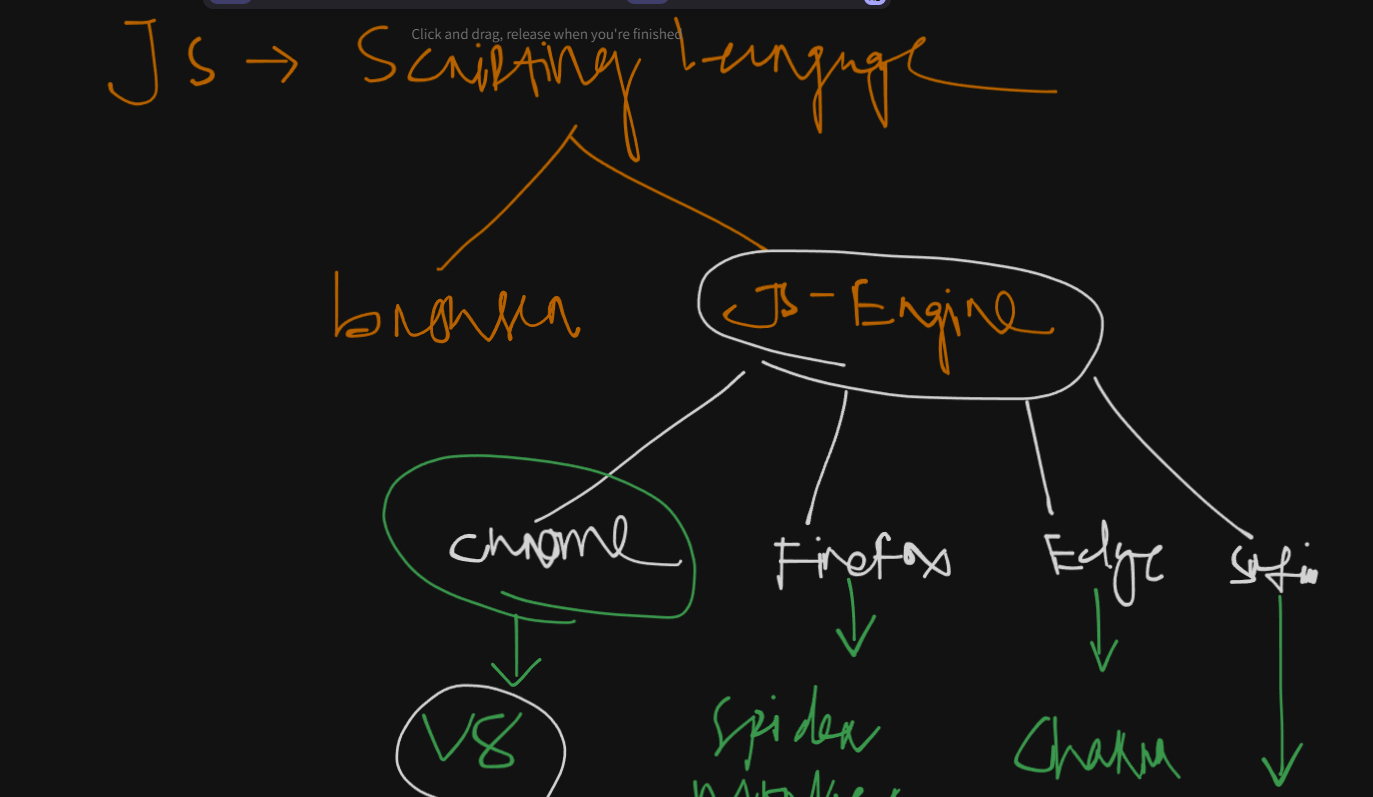 Click and drag, release when you're finished
Js → Scripting Language
browser
JS-Engine
chrome
Firefox
Edge
V8
Spider
Chakra